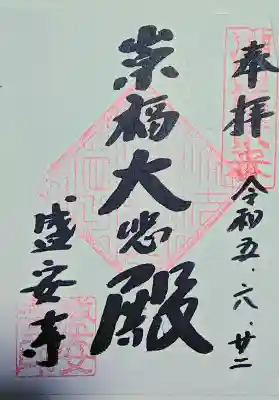 奉拝
令和五・六・廿二
崇福大悲殿
盛安寺